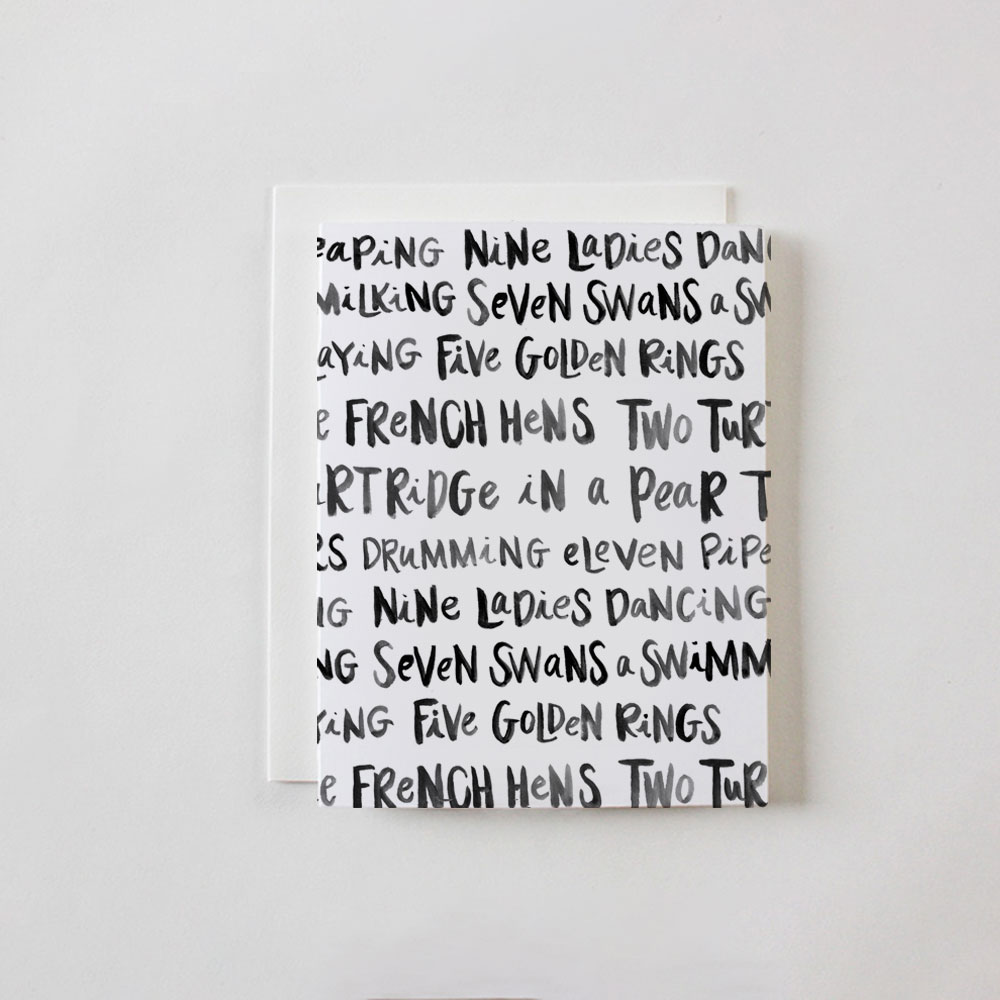 eaPiNG NiNe LaDies DANC
MiLKiNG SeVeN SWaNS a SW
aYiNG FiVe GOLDeN RiNGS
e FReNCH HeNS TWo TuRT
aRTRiDGe iN a PeaR T
RS DRuMMiNG eLeVeN PiPe
NG NiNe LaDieS DaNCiNG
NG SeVeN SWaNS a SWiMM
YiNG FiVe GOLDeN RiNGS
e FReNCH HeNS TWo TuR